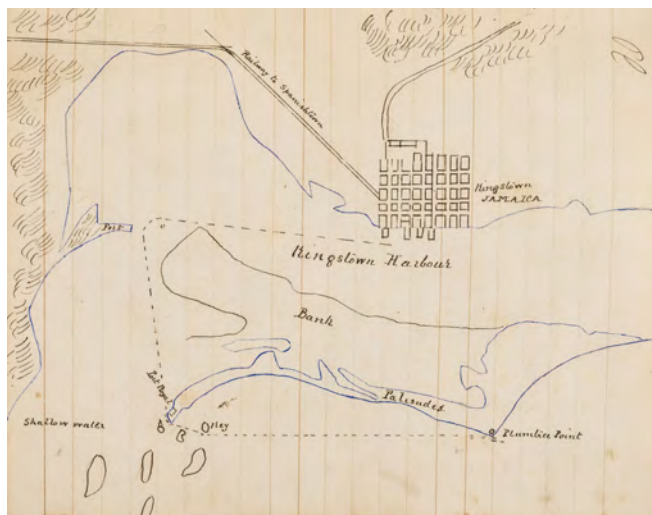 Railway to Spanishtown
Kingstown
JAMAICA
Fort
Kingstown Harbour
Bank
Port Royal
Palisades
Shallow water
Key
Plumtree Point